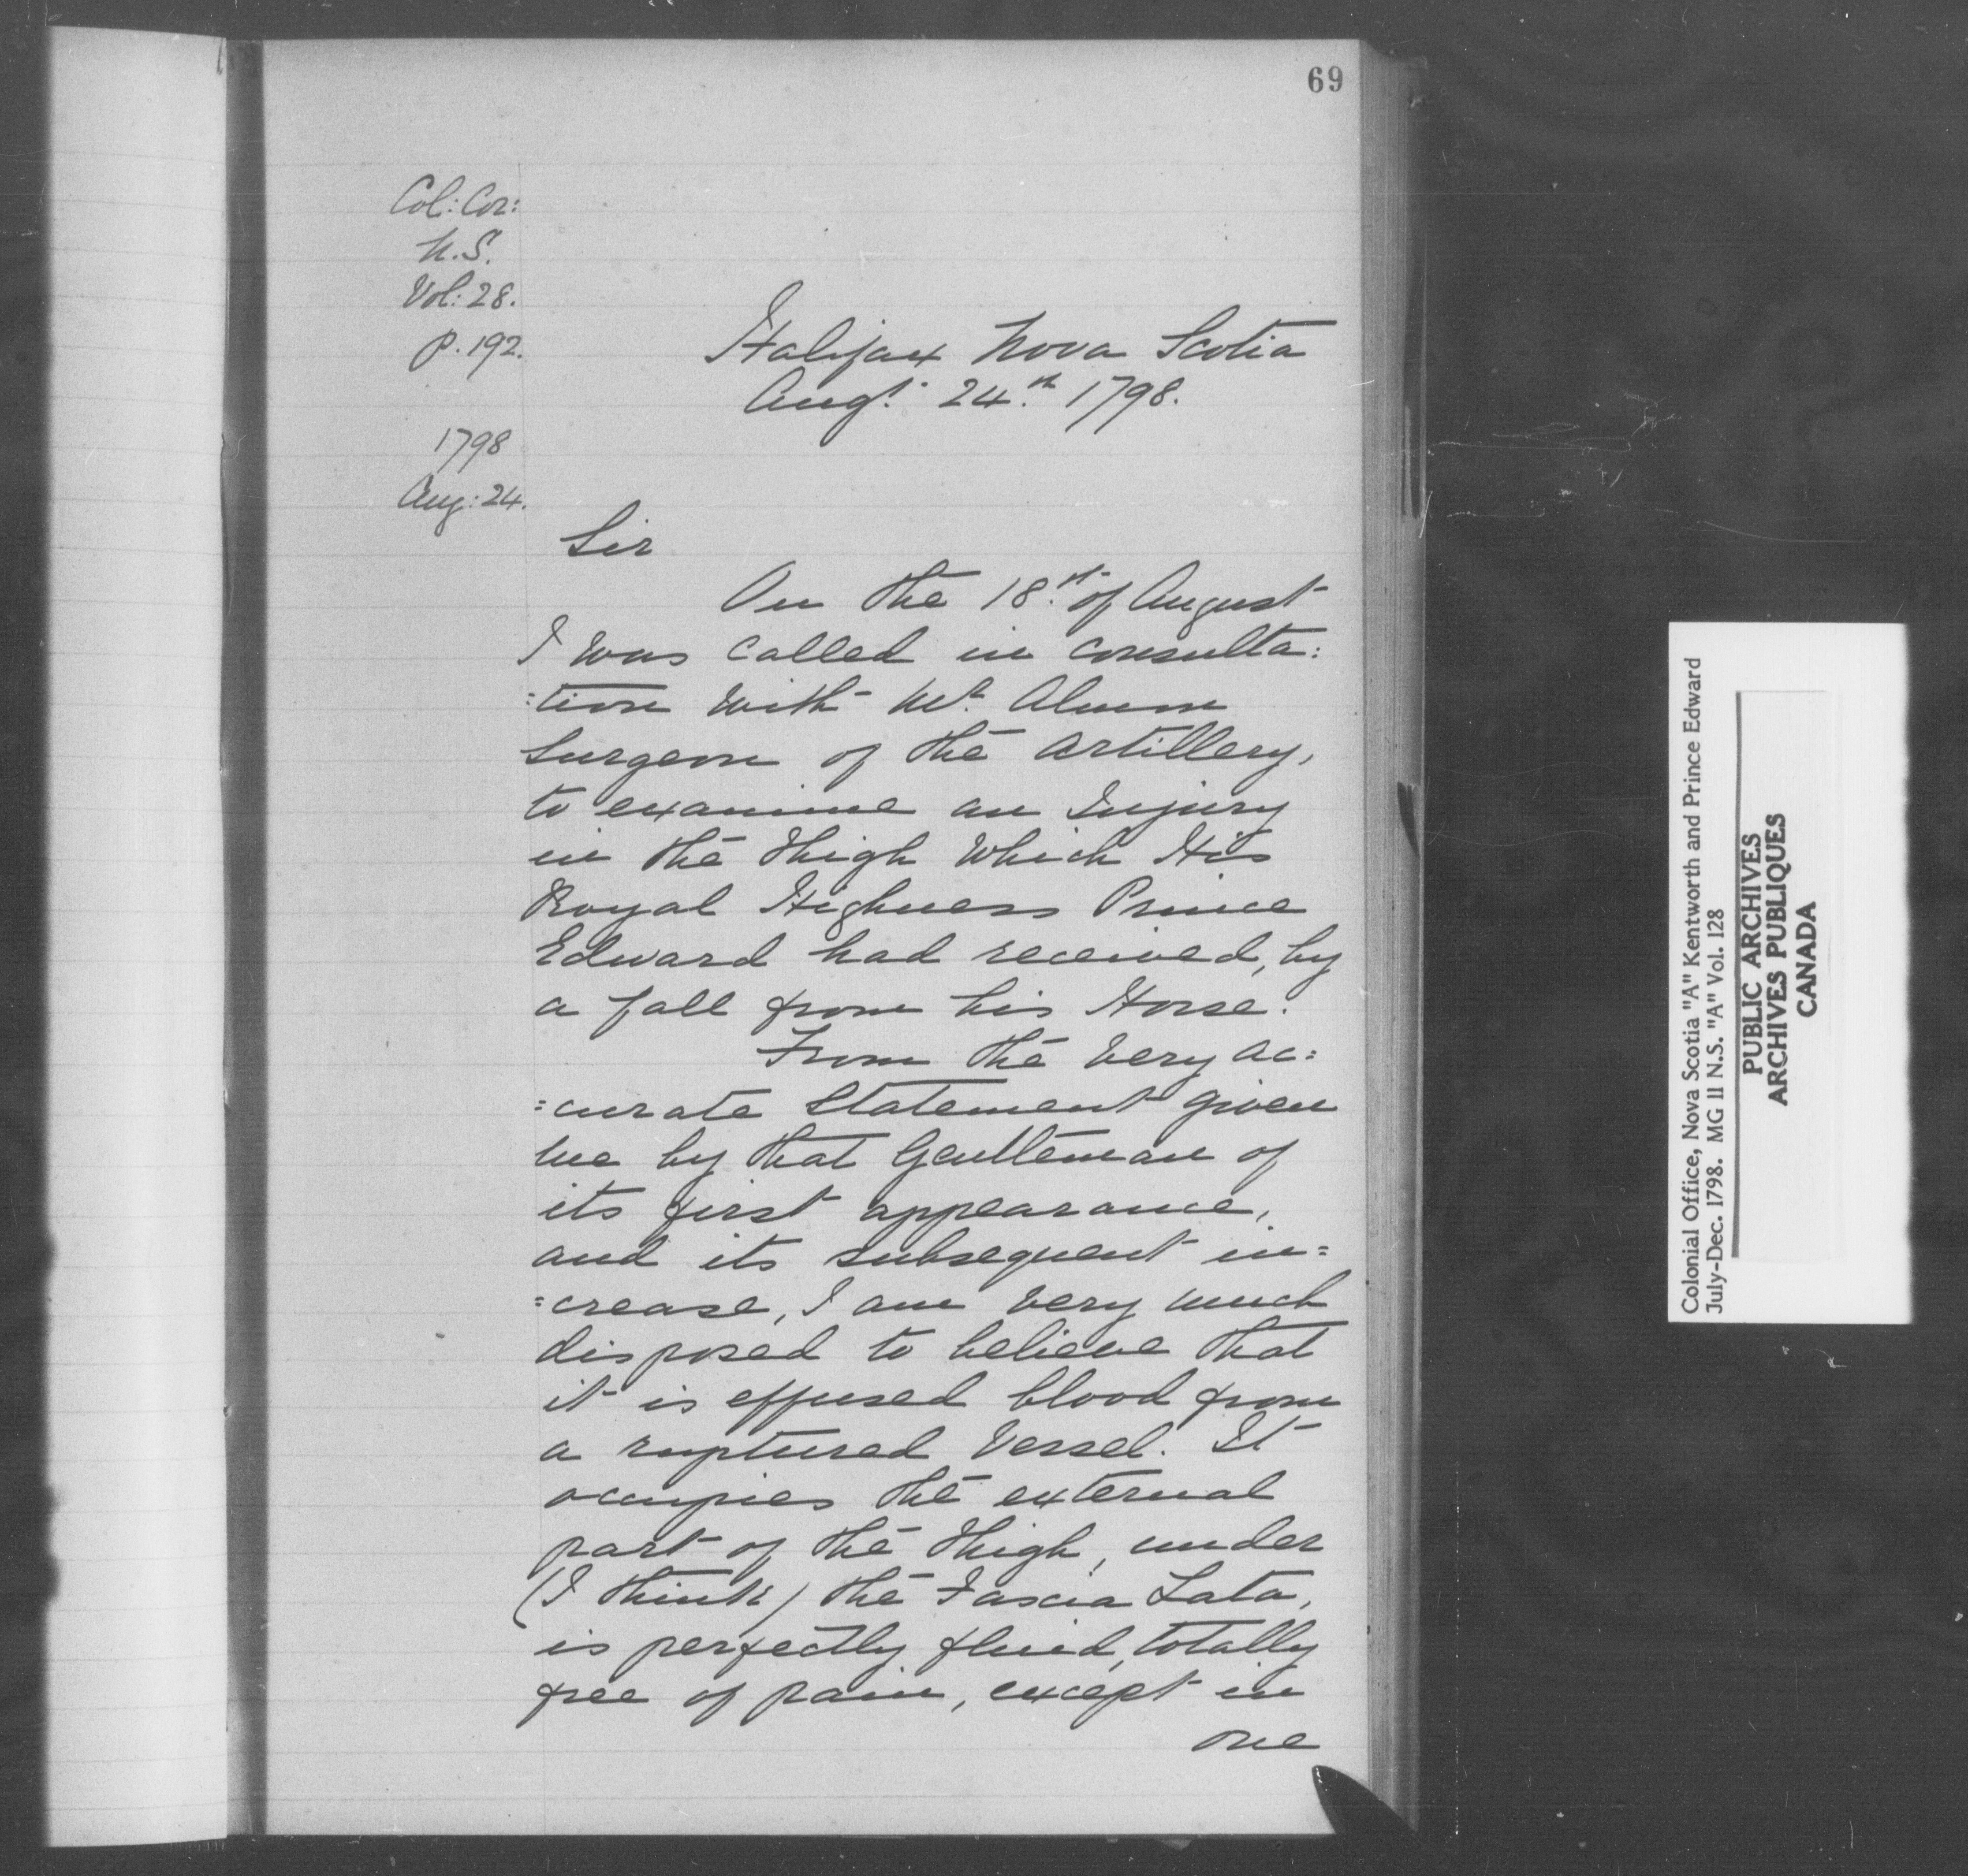 69
Col: Cor:
N.S.
Vol: 28.
p. 192.
1798
Aug: 24.
Halifax Nova Scotia
Augt. 24.th 1798.
Sir
On the 18.th of August
I was called in consulta:
:tion with Mr. Almon
Surgeon of the Artillery,
to examine an Injury
in the Thigh which His
Royal Highness Prince
Edward had received, by
a fall from his Horse.
From the very ac:
:curate Statement given
me by that Gentleman of
its first appearance,
and its subsequent in:
:crease, I am very much
disposed to believe that
it is effused blood from
a ruptured Vessel. It
occupies the external
part of the Thigh, under
(I think) the Fascia Lata,
is perfectly fluid, totally
free of pain, except in
one
Colonial Office, Nova Scotia "A" Kentworth and Prince Edward
July-Dec. 1798. MG II N.S. "A" Vol. 128
PUBLIC ARCHIVES
ARCHIVES PUBLIQUES
CANADA